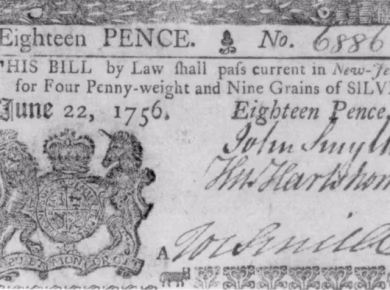 Eighteen PENCE. No. 6886
THIS BILL by Law ſhall paſs current in New-Je
for Four Penny-weight and Nine Grains of SILV
June 22, 1756. Eighteen Pence
John Smyth
A